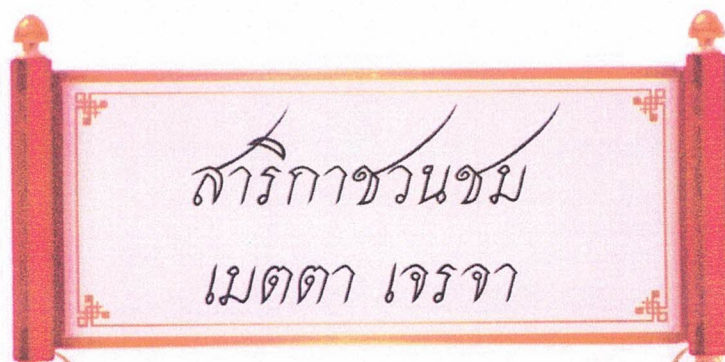 สาริกาชวนชม
เมตตา เจรจา